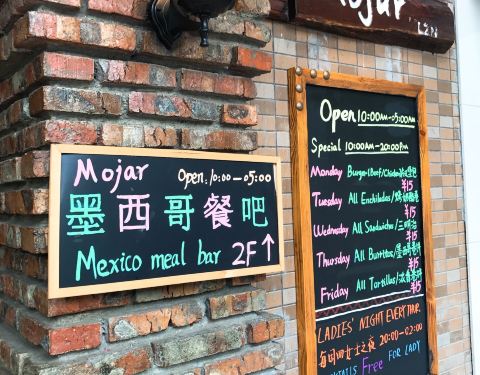 Mojar
Mojar Open: 10:00—05:00
墨西哥餐吧
Mexico meal bar 2F↑
Open 10:00AM-05:00AM
Special 10:00AM-20:00PM
Monday Burger(Beef/Chicken)汉堡包
¥15
Tuesday All Enchiladas/
¥15
Wednesday All Sandwichs/三明治
¥15
Thursday All Burritos/墨西哥卷
¥15
Friday All Tortillas/
¥15
LADIES' NIGHT EVERY THUR.
每周四女士之夜 20:00-02:00
COCKTAILS Free FOR LADY